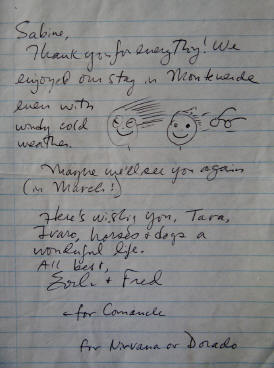 Sabine,
Thank you for everything! We
enjoyed our stay in Monteverde
even with
windy cold
weather.
Maybe we'll see you again
(in March!)
Here's wishing you, Tara,
horses + dogs a
wonderful life.
All best,
+ Fred
for Comanche
for Nirvana or Dorado